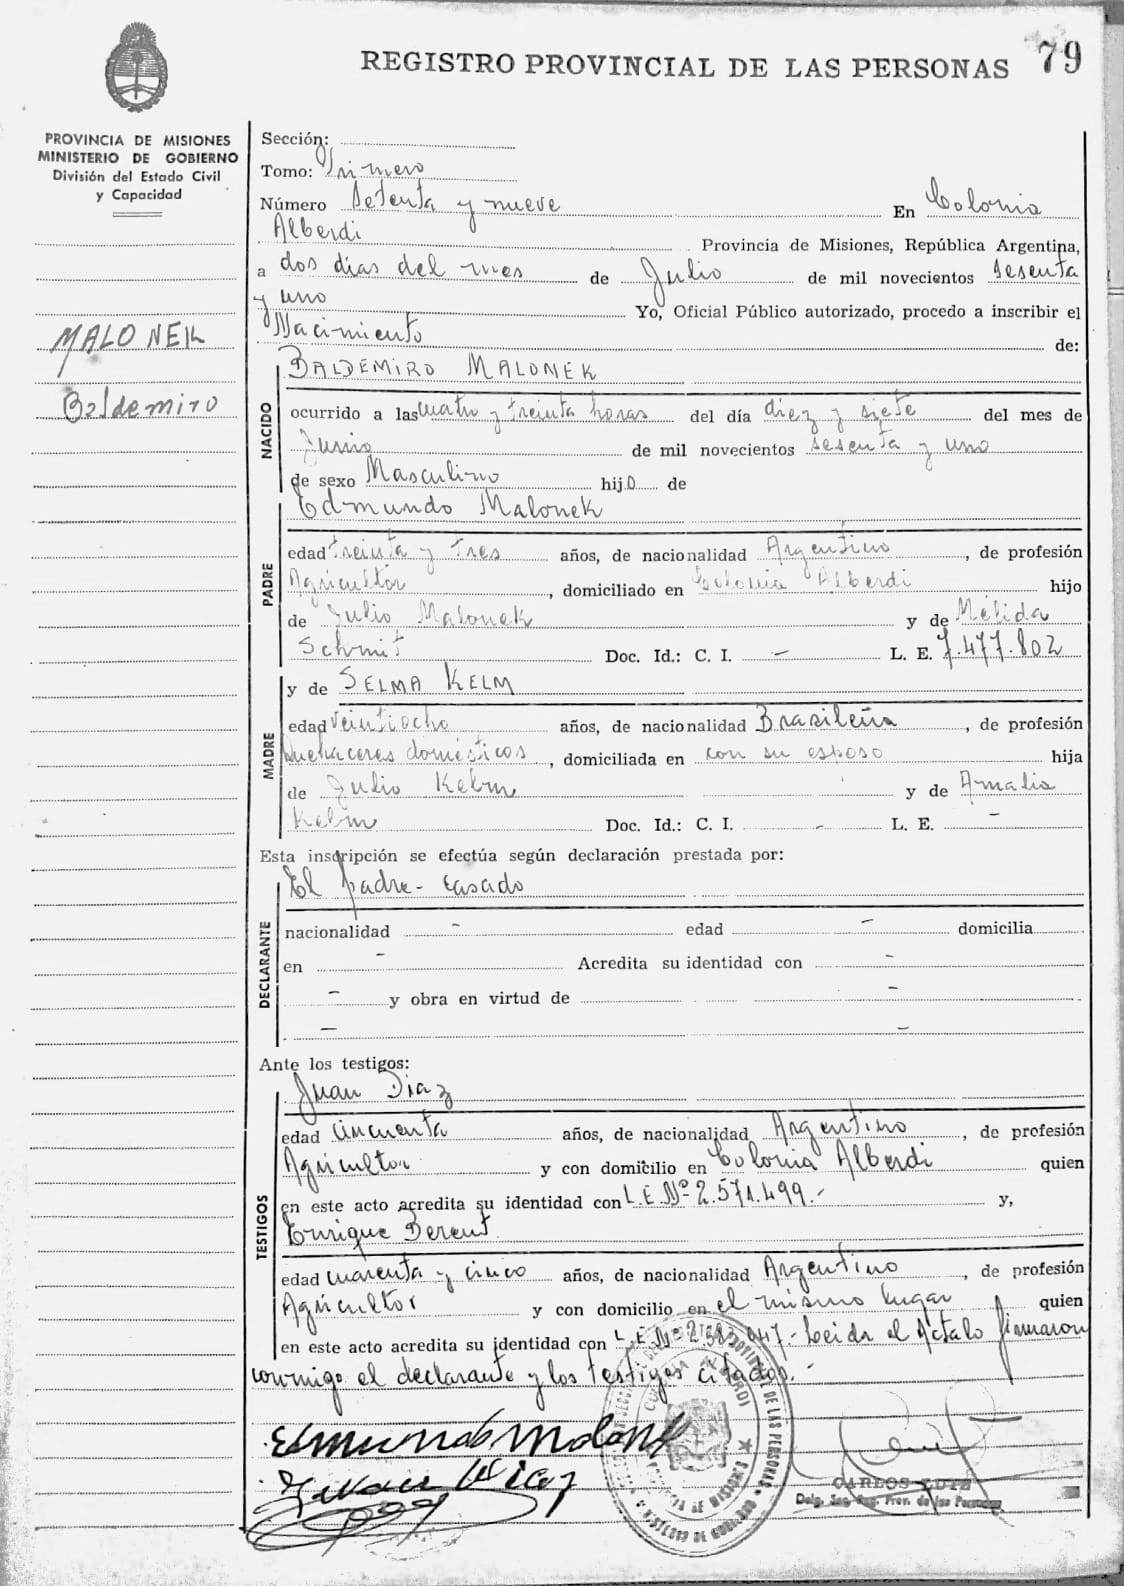 79
REGISTRO PROVINCIAL DE LAS PERSONAS
PROVINCIA DE MISIONES
MINISTERIO DE GOBIERNO
División del Estado Civil
y Capacidad
MALONEK
Baldemiro
Sección:
Tomo: Primero
Número Setenta y nueve En Colonia
Alberdi Provincia de Misiones, República Argentina,
a dos días del mes de Julio de mil novecientos sesenta
y uno Yo, Oficial Público autorizado, procedo a inscribir el
Nacimiento de:
NACIDO
BALDEMIRO MALONEK
ocurrido a las cuatro y treinta horas del día diez y siete del mes de
Junio de mil novecientos sesenta y uno
de sexo Masculino hijo de
PADRE
Edmundo Malonek
edad treinta y tres años, de nacionalidad Argentino, de profesión
Agricultor, domiciliado en Colonia Alberdi hijo
de Julio Malonek y de Mélida
Schmit Doc. Id.: C. I. - L. E. 7.477.802
MADRE
y de SELMA KELM
edad veintiocho años, de nacionalidad Brasileña, de profesión
quehaceres domésticos, domiciliada en con su esposo hija
de Julio Kelm y de Amalia
Kelm Doc. Id.: C. I. - L. E. -
Esta inscripción se efectúa según declaración prestada por:
DECLARANTE
El padre - casado
nacionalidad - edad - domicilia
en - Acredita su identidad con -
- y obra en virtud de -
- -
Ante los testigos:
TESTIGOS
Juan Diaz
edad cincuenta años, de nacionalidad Argentino, de profesión
Agricultor y con domicilio en Colonia Alberdi quien
en este acto acredita su identidad con L.E.Nº 2.571.499.- y,
Enrique Berent
edad cuarenta y cinco años, de nacionalidad Argentino, de profesión
Agricultor y con domicilio en el mismo lugar quien
en este acto acredita su identidad con L.E.Nº - Leida el Acta lo firmaron
conmigo el declarante y los testigos citados.-
Edmundo Malonek
Juan Diaz
CARLOS
Deleg. Sec. Reg. Prov. de las Personas